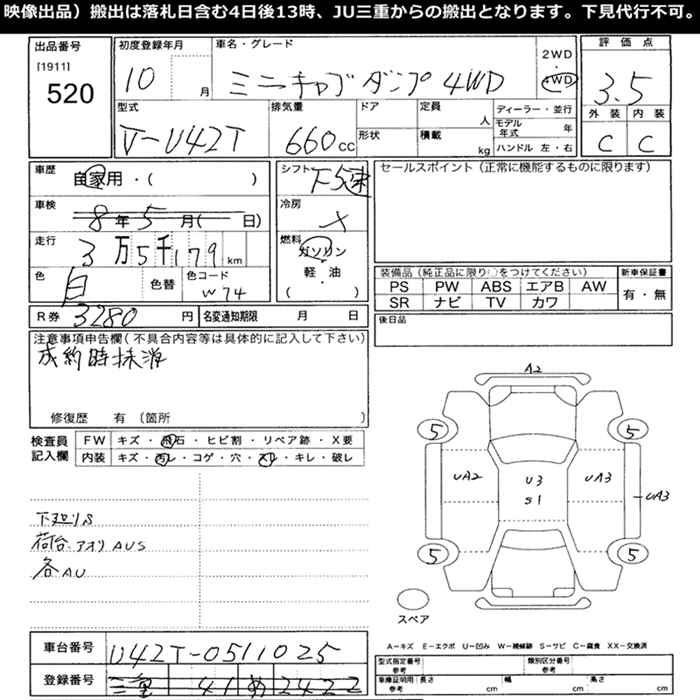 映像出品）搬出は落札日含む4日後13時、JU三重からの搬出となります。下見代行不可。
出品番号
[1911]
520
初度登録年月
10 月
車名・グレード
ミニキャブ ダンプ 4WD
2WD
・
4WD
評価点
3.5
外装 内装
C C
型式
V-U42T
排気量
660 cc
ドア
形状
定員
人
積載
kg
ディーラー・並行
モデル年式 年
ハンドル 左・右
車歴
自家用・( )
車検
8年5月( 日)
走行
3万5千179 km
色
白
色替
色コード
W74
シフト
F5速
冷房
×
燃料
ガソリン
軽・油
( )
セールスポイント(正常に機能するものに限ります)
装備品(純正品に限り○をつけてください)
PS PW ABS エアB AW
SR ナビ TV カワ
新車保証書
有・無
R券 3280 円
名変通知期限 月 日
後日品
注意事項申告欄(不具合内容等は具体的に記入して下さい)
成約時抹消
修復歴 有(箇所
検査員記入欄
FW キズ・飛石・ヒビ割・リペア跡・X要
内装 キズ・汚レ・コゲ・穴・スレ・キレ・破レ
下廻りS
荷台.アオリAUS
各AU
A2
5 5
UA2
U3
S1
UA3
UA3
5 5
スペア
車台番号 U42T-0511025
登録番号 三重 41 あ 2422
A-キズ E-エクボ U-凹み W-補修跡 S-サビ C-腐食 XX-交換済
型式指定番号 参考
類別区分番号 参考
車庫証明用 参考
長さ cm
幅 cm
高さ cm